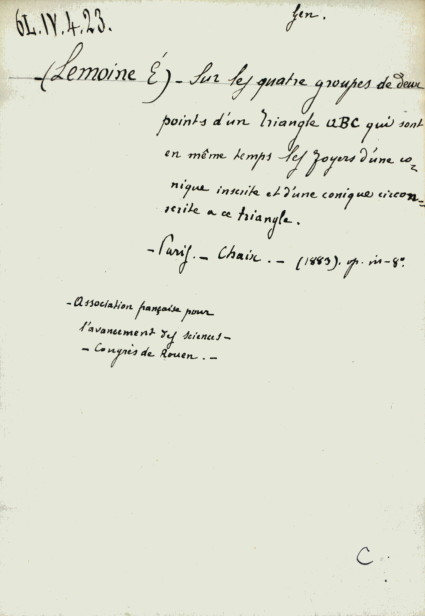 6L.IV.4.23.
Gen.
(Lemoine É) - Sur les quatre groupes de deux
points d'un Triangle ABC qui sont
en même temps les foyers d'une co-
nique inscrite et d'une conique circon-
scrite a ce triangle.
- Paris. - Chaix. - (1883). op. in-8°.
- Association française pour
l'avancement des sciences -
- Congrès de Rouen. -
C